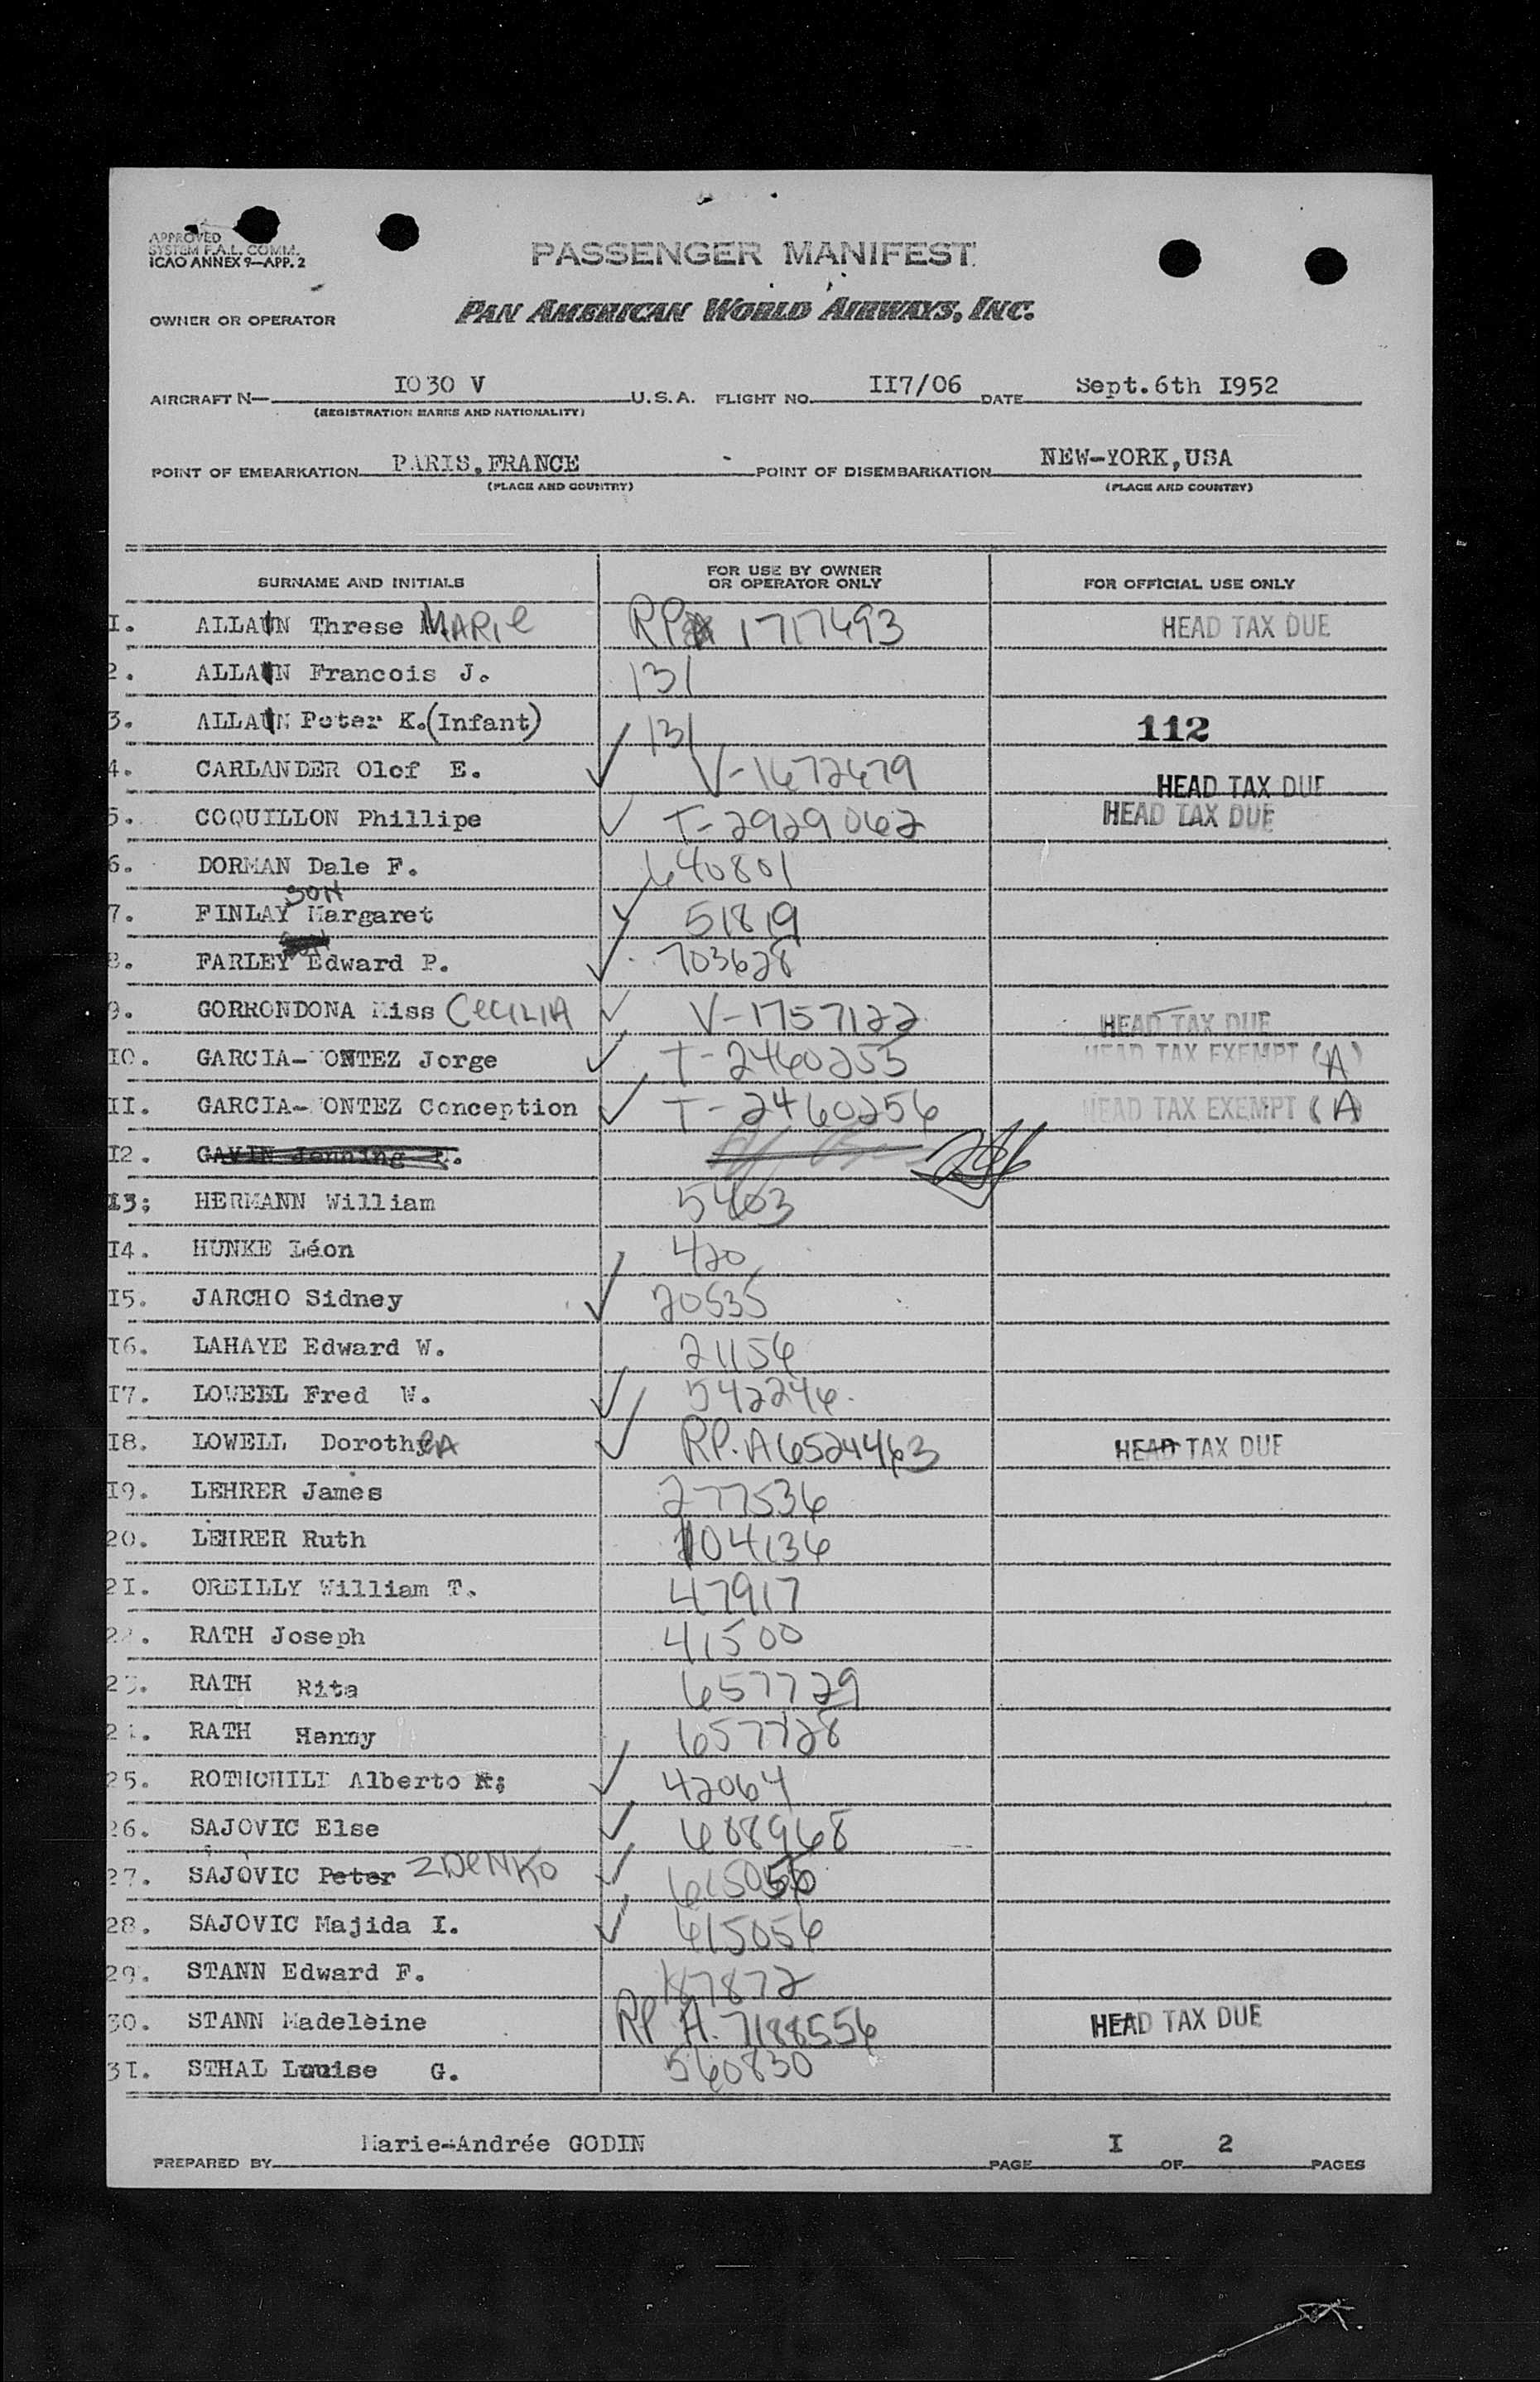 APPROVED
SYSTEM F.A.L. COMM.
ICAO ANNEX 9—APP. 2
PASSENGER MANIFEST
OWNER OR OPERATOR PAN AMERICAN WORLD AIRWAYS, INC.
AIRCRAFT N— I030 V U.S.A. FLIGHT NO. II7/06 DATE Sept.6th I952
(REGISTRATION MARKS AND NATIONALITY)
POINT OF EMBARKATION PARIS,FRANCE POINT OF DISEMBARKATION NEW-YORK,USA
(PLACE AND COUNTRY) (PLACE AND COUNTRY)
SURNAME AND INITIALS FOR USE BY OWNER OR OPERATOR ONLY FOR OFFICIAL USE ONLY
I. ALLAIN Threse MARIe RPA 1717493 HEAD TAX DUE
2. ALLAIN Francois J. 131
3. ALLAIN Peter K.(Infant) 131 112
4. CARLANDER Olof E. V-1672479 HEAD TAX DUE
5. COQUILLON Phillipe T-2929062 HEAD TAX DUE
6. DORMAN Dale F. 640801
7. FINLAYSON Margaret 51819
8. FARLEY Edward P. 703628
9. GORRONDONA Miss CeCILIA V-1757122 HEAD TAX DUE
I0. GARCIA-MONTEZ Jorge T-2460255 HEAD TAX EXEMPT (A)
II. GARCIA-MONTEZ Conception T-2460256 HEAD TAX EXEMPT (A)
I2. GAVIN Jenning
I3; HERMANN William 5403
I4. HUNKE Léon 420
I5. JARCHO Sidney 20535
I6. LAHAYE Edward W. 21156
I7. LOWELL Fred W. 542246
I8. LOWELL DorotheA RP. A6524463 HEAD TAX DUE
I9. LEHRER James 277536
20. LEHRER Ruth 104136
2I. OREILLY William T. 47917
22. RATH Joseph 41500
23. RATH Rita 657729
24. RATH Henny 657728
25. ROTHCHILD Alberto K; 42064
26. SAJOVIC Else 688968
27. SAJOVIC Peter ZDeNKO 615056
28. SAJOVIC Majida I. 615056
29. STANN Edward F. 187872
30. STANN Madeleine RP A. 7188556 HEAD TAX DUE
3I. STHAL Louise G. 560830
PREPARED BY Marie-Andrée GODIN PAGE I OF 2 PAGES